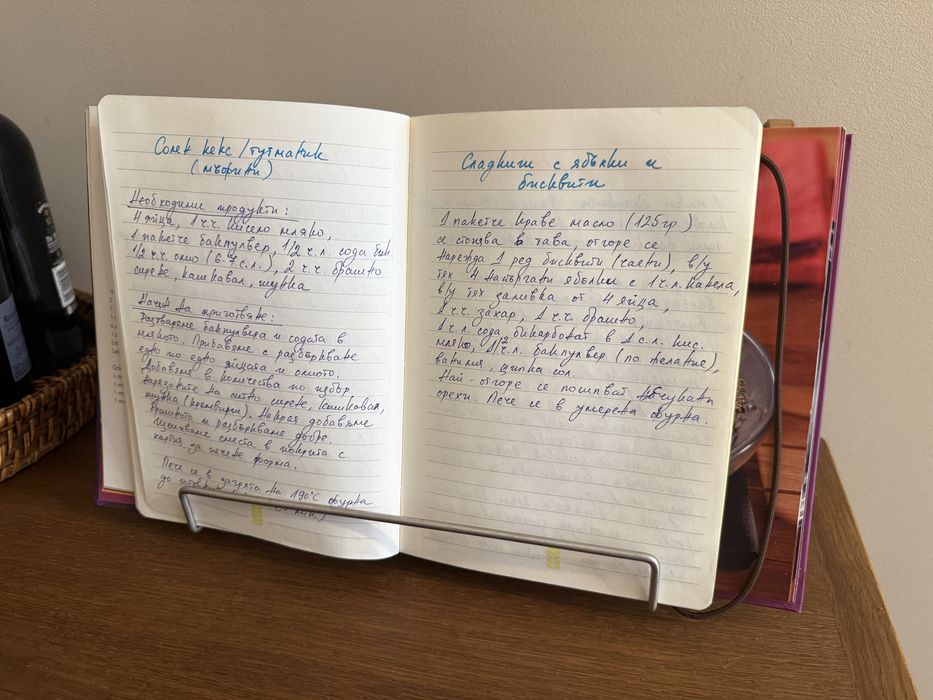 Солен кекс / тутманик
(мъфини)
Необходими продукти:
4 яйца, 1 ч.ч. кисело мляко,
1 пакетче бакпулвер, 1/2 ч.л. сода бик.
1/2 ч.ч. олио (6-7 с.л.), 2 ч.ч. брашно
сирене, кашкавал, шунка
Начин на приготвяне:
Разтваряме бакпулвера и содата в
млякото. Прибавяме с разбъркване
едно по едно яйцата и олиото.
Добавяме в количества по избор
нарязаните на ситно сирене, кашкавал,
шунка (кренвирш). Накрая добавяме
брашното и разбъркваме добре.
Изсипваме сместа в покрита с
хартия за печене форма.
Пече се в загрята на 190°C фурна
до готовност
Сладкиш с ябълки и
бисквити
1 пакетче краве масло (125гр.)
се стопява в тава, отгоре се
нарежда 1 ред бисквити (чаени), в/у
тях 4 настъргани ябълки с 1 ч.л. канела,
в/у тях заливка от 4 яйца,
1 ч.ч. захар, 1 ч.ч. брашно,
1 ч.л. сода бикарбонат в 1 с.л. кис.
мляко, 1/2 ч.л. бакпулвер (по желание),
ванилия, щипка сол.
Най-отгоре се посипват начукани
орехи. Пече се в умерена фурна.